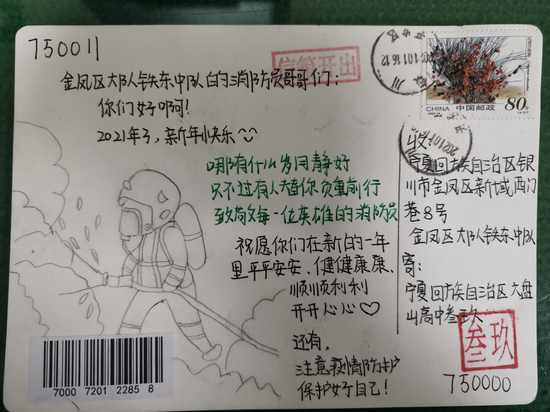 750011
信筒开出
金凤区大队铁东中队的消防员哥哥们：
你们好啊！
2021年了，新年快乐
哪有什么岁月静好
只不过有人替你负重前行
致敬每一位英雄的消防员
祝愿你们在新的一年
里平平安安、健健康康、
顺顺利利
开开心心
还有，
注意疫情防护
保护好自己！
7000 7201 2285 8
中国邮政
CHINA
80分
收：
宁夏回族自治区银
川市金凤区新城西门
巷8号
金凤区大队铁东中队
寄：
宁夏回族自治区大盘
山高中叁玖
叁玖
750000